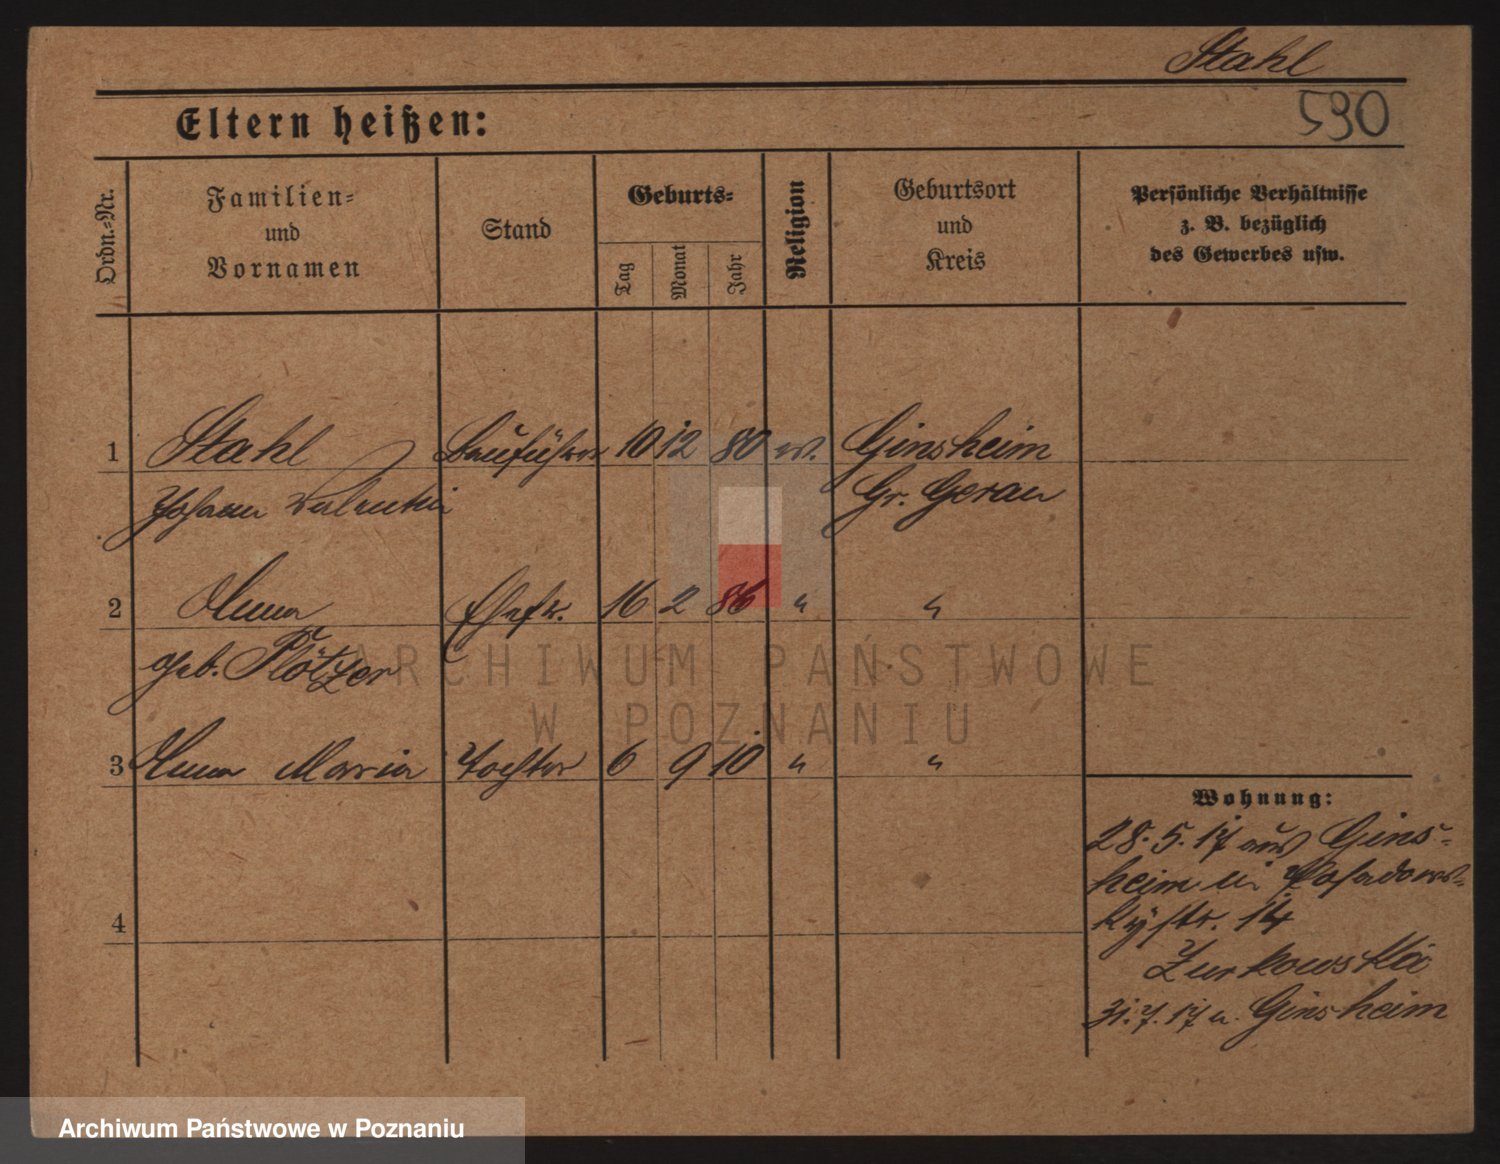 Stahl
590
Eltern heißen:
Ordn.-Nr.
Familien-
und
Vornamen
Stand
Geburts-
Tag
Monat
Jahr
Religion
Geburtsort
und
Kreis
Persönliche Verhältnisse
z. B. bezüglich
des Gewerbes usw.
1 Stahl Bauführer 10 12 80 ev. Ginsheim
Johann Valentin Gr. Gerau
2 Anna Ehefr. 16 2 86 " "
geb. Plötzer
3 Anna Maria Tochter 6 9 10 " "
4
Wohnung:
28.5.17 aus Gins-
heim in Posadows-
kystr. 14
Zurkowski
31.7.17 n. Ginsheim
ARCHIWUM PAŃSTWOWE
W POZNANIU
Archiwum Państwowe w Poznaniu